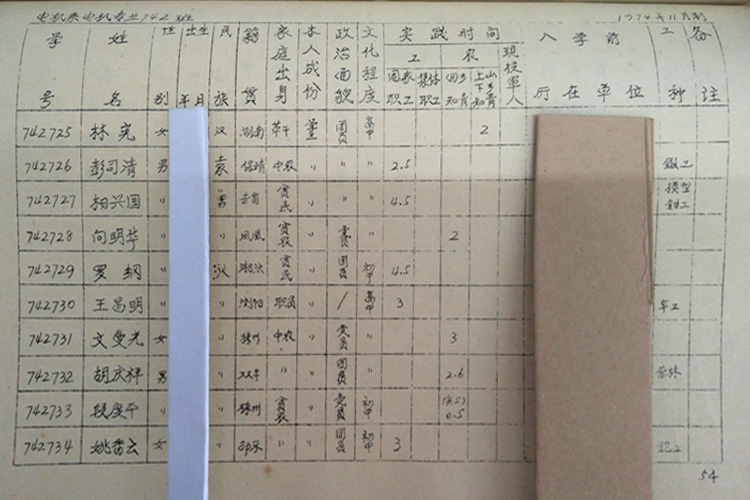 电机系电机专业742班 1974年11月制
学号 姓名 性别 出生年月 民族 籍贯 家庭出身 本人成份 政治面貌 文化程度 实践时间 现役军人 入学前所在单位 工种 备注
工 农
国家职工 集体职工 回乡知青 上山下乡知青
742725 林 女 汉 湖南 革干 学生 团员 高中 2
742726 彭司清 男 土家 保靖 中农 〃 〃 〃 2.5 锻工
742727 相兴国 〃 贫民 〃 〃 〃 4.5 模型钳工
742728 向明华 〃 〃 凤凰 贫农 〃 党员 〃 2
742729 罗纲 〃 汉 贫民 〃 团员 初中 4.5
742730 王昌明 〃 〃 浏阳 职员 〃 / 高中 3 车工
742731 文雯光 女 〃 株州 中农 〃 党员 〃 3
742732 胡庆祥 男 〃 双峰 〃 〃 团员 〃 2.6
742733 段度平 〃 〃 株州 贫农 〃 党员 初中 0.5
742734 姚香云 女 〃 〃 〃 团员 初中 3
54